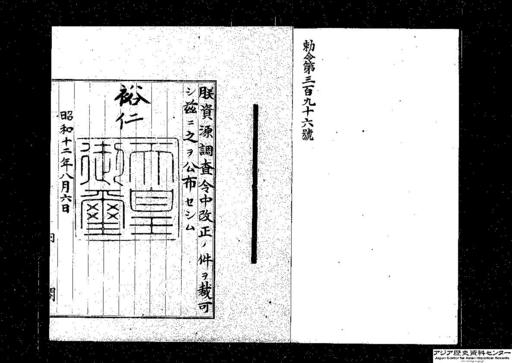 勅令第三百九十六號
朕資源調査令中改正ノ件ヲ裁可
シ茲ニ之ヲ公布セシム
裕仁
天皇
御璽
昭和十二年八月六日
内閣
アジア歴史資料センター
Japan Center for Asian Historical Records